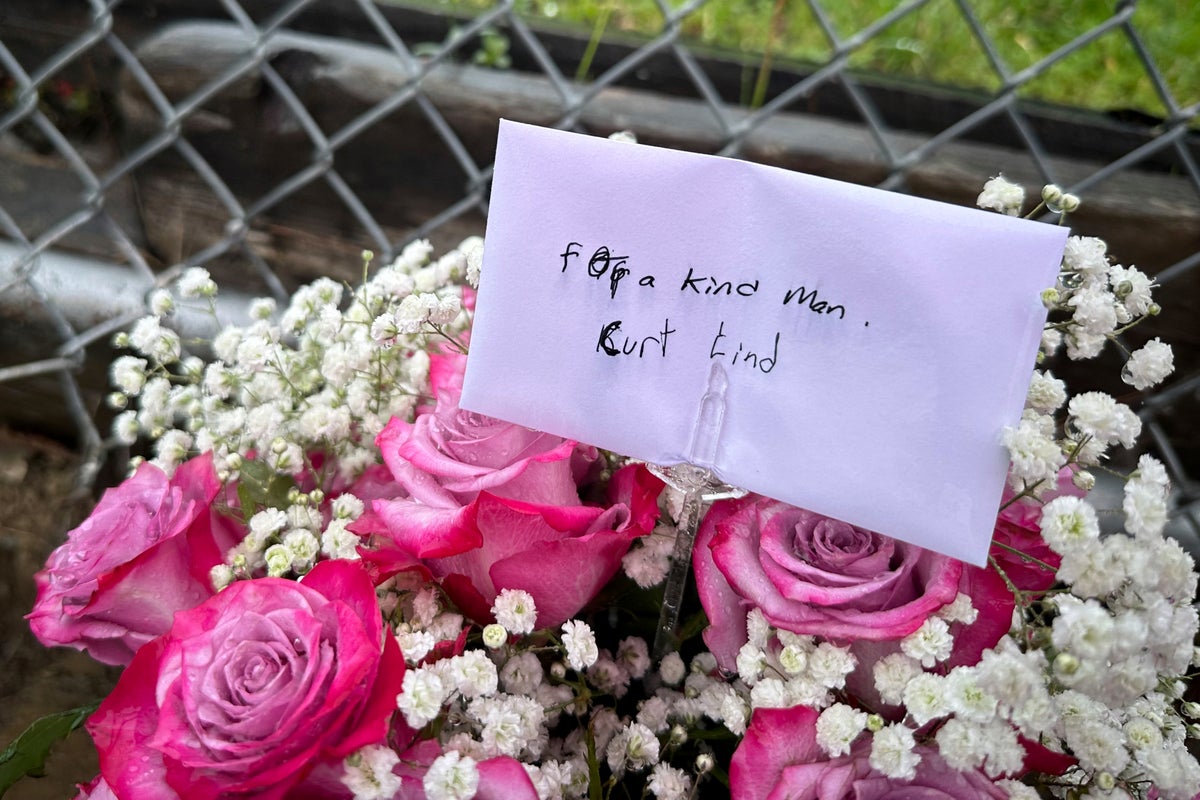 For a kind man.
Kurt Lind